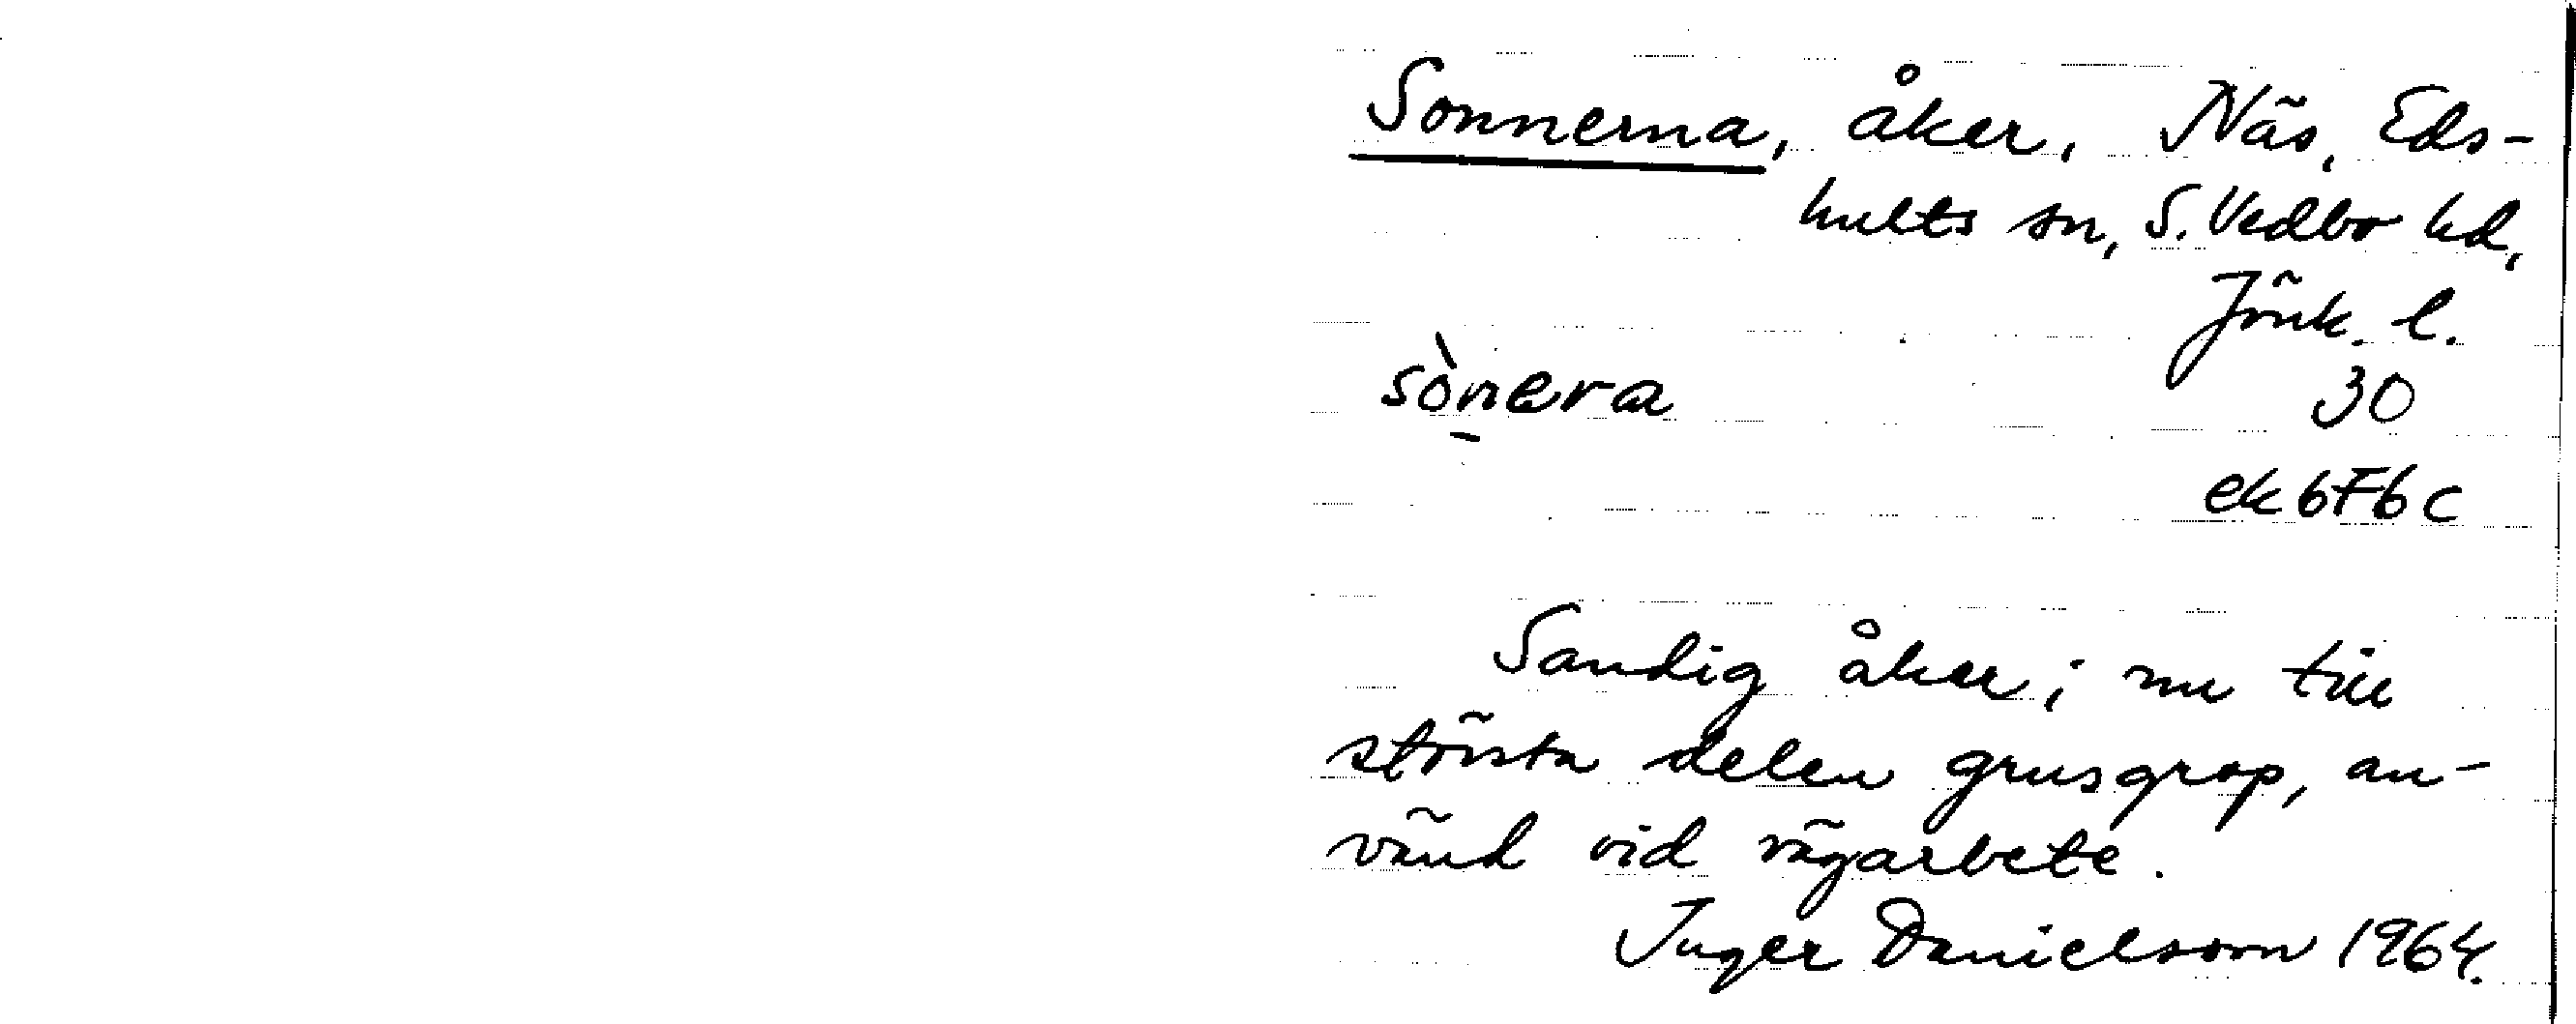 Sonnerna, åker, Näs, Eds-
hults sn, S. Vedbo hd,
Jönk. l.
sònera 30
ek 6F6c
Sandig åker; nu till
största delen grusgrop, an-
vänd vid vägarbete.
Inger Danielsson 1964.